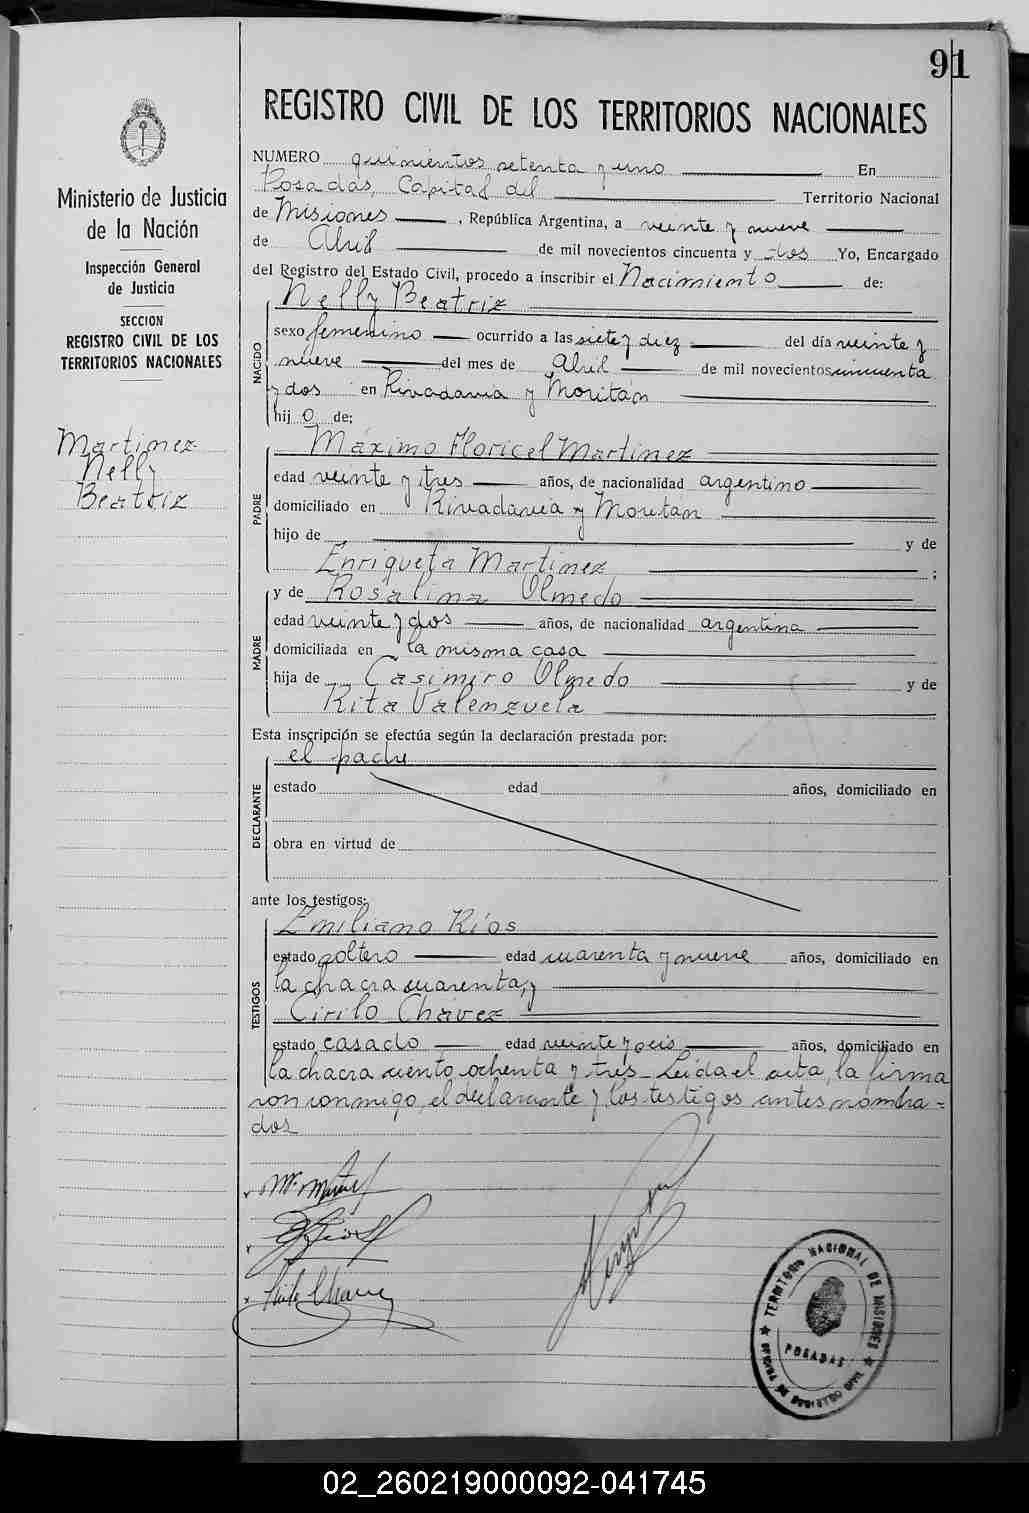 91
REGISTRO CIVIL DE LOS TERRITORIOS NACIONALES
Ministerio de Justicia
de la Nación
Inspección General
de Justicia
SECCION
REGISTRO CIVIL DE LOS
TERRITORIOS NACIONALES
Martinez
Nelly
Beatriz
NUMERO quinientos setenta y uno En
Posadas, Capital del Territorio Nacional
de Misiones, República Argentina, a veinte y nueve
de Abril de mil novecientos cincuenta y dos Yo, Encargado
del Registro del Estado Civil, procedo a inscribir el Nacimiento de:
NACIDO
Nelly Beatriz
sexo femenino ocurrido a las siete y diez del día veinte y
nueve del mes de Abril de mil novecientos cincuenta
y dos en Rivadavia y Moritán
hij o de:
PADRE
Máximo Floricel Martinez
edad veinte y tres años, de nacionalidad argentino
domiciliado en Rivadavia y Moritan
hijo de y de
Enriqueta Martinez ;
MADRE
y de Rosalina Olmedo
edad veinte y dos años, de nacionalidad argentina
domiciliada en la misma casa
hija de Casimiro Olmedo y de
Rita Valenzuela
Esta inscripción se efectúa según la declaración prestada por:
DECLARANTE
el padre
estado edad años, domiciliado en
obra en virtud de
ante los testigos:
TESTIGOS
Emiliano Ríos
estado soltero edad cuarenta y nueve años, domiciliado en
la chacra cuarenta, y
Cirilo Chávez
estado casado edad veinte y seis años, domiciliado en
la chacra ciento ochenta y tres_ Leida el acta, la firma
con conmigo, el declarante y los testigos antes nombra=
dos
TERRITORIO NACIONAL DE MISIONES
POSADAS
02_260219000092-041745